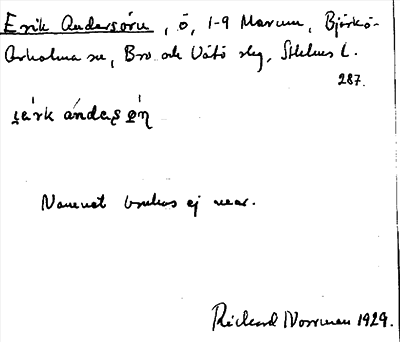 Erik Andersörn, ö, 1-9 Marum, Björkö-
Arholma sn, Bro och Vätö slg, Sthlms L.
287.
Namnet brukas ej mer.
Rickard Norrman 1929.